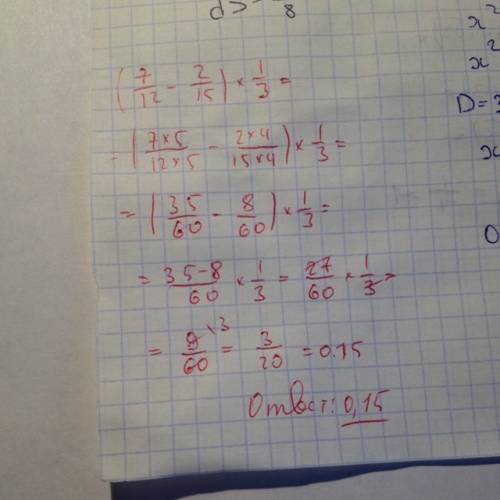 d > — 8
(7/12 - 2/15) × 1/3 =
= (7×5/12×5 - 2×4/15×4) × 1/3 =
= (35/60 - 8/60) × 1/3 =
= 35-8/60 × 1/3 = 27/60 × 1/3 =
= 9\3/60 = 3/20 = 0.15
Ответ: 0,15
x²
x²
D = 3
x
0